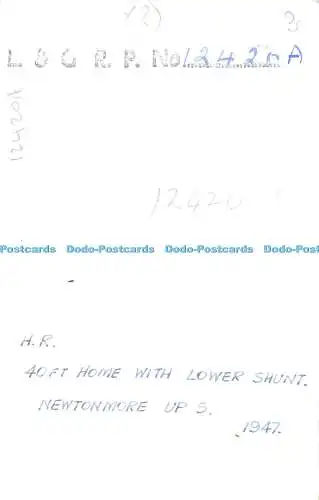 (2)
L & G R. P. No 12420A
12420A
12420
Postcards Dodo-Postcards Dodo-Postcards Dodo-Postcards
H.R.
40FT HOME WITH LOWER SHUNT.
NEWTONMORE UP S.
1947.